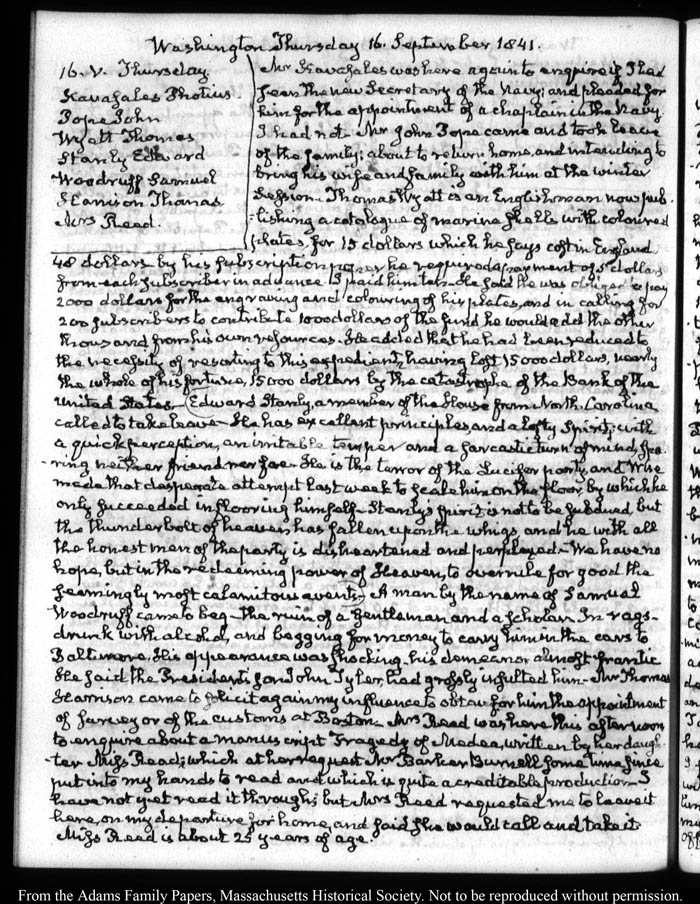 Washington Thursday 16. September 1841.
16. V. Thursday.
Kavasales Photius
Pope John
Wyatt Thomas
Stanly Edward
Woodruff Samuel
Harrison Thomas
Mrs Read.
Mr Kavasales was here again to enquire if I had
seen the new Secretary of the Navy; and pleaded for
him for the appointment of a chaplain in the Navy
I had not. Mr John Pope came and took leave
of the family; about to return home, and intending to
bring his wife and family with him at the winter
Session. Thomas Wyatt is an Englishman now pub-
lishing a catalogue of marine shells with coloured
plates, for 15 dollars which he says cost in England
48 dollars by his subscription paper he required a payment of 5 dollars
from each subscriber in advance I paid him ten. He said he was obliged to pay
2000 dollars for the engraving and colouring of his plates, and in calling for
200 subscribers to contribute 1000 dollars of the fund he would add the other
thousand from his own resources. He added that he had been reduced to
the necessity of resorting to this expedient, having lost 15000 dollars, nearly
the whole of his fortune, 15000 dollars by the catastrophe of the Bank of the
United States. Edward Stanly, a member of the House from North Carolina
called to take leave. He has excellent principles, and a lofty spirit, with
a quick perception, an irritable temper and a sarcastic turn of mind, spa-
ring neither friend nor foe. He is the terror of the Lucifer party, and Wise
made that desperate attempt last week to scale him on the floor, by which he
only succeeded in flooring himself. Stanly's spirit is not to be subdued, but
the thunderbolt of heaven has fallen upon the whigs, and he with all
the honest men of the party is disheartened and perplexed. We have no
hope, but in the redeeming power of Heaven, to overrule for good the
seemingly most calamitous events. A man by the name of Samuel
Woodruff came to beg. the ruin of a Gentleman and a Scholar. In rags-
drunk with alcohol, and begging for money to carry him in the cars to
Baltimore. His appearance was shocking. his demeanor almost frantic
He said the President's son John Tyler, had grossly insulted him. Mr Thomas
Harrison came to solicit again my influence to obtain for him the appointment
of Surveyor of the customs at Boston. Mrs Read was here this afternoon
to enquire about a manuscript Tragedy of Medea, written by her daugh-
ter Miss Read; which at her request Mr Barker Burnell some time since
put into my hands to read and which is quite a creditable production. I
have not yet read it through; but Mrs Read requested me to leave it
here, on my departure for home, and said she would call and take it.
Miss Read is about 25 years of age.
From the Adams Family Papers, Massachusetts Historical Society. Not to be reproduced without permission.